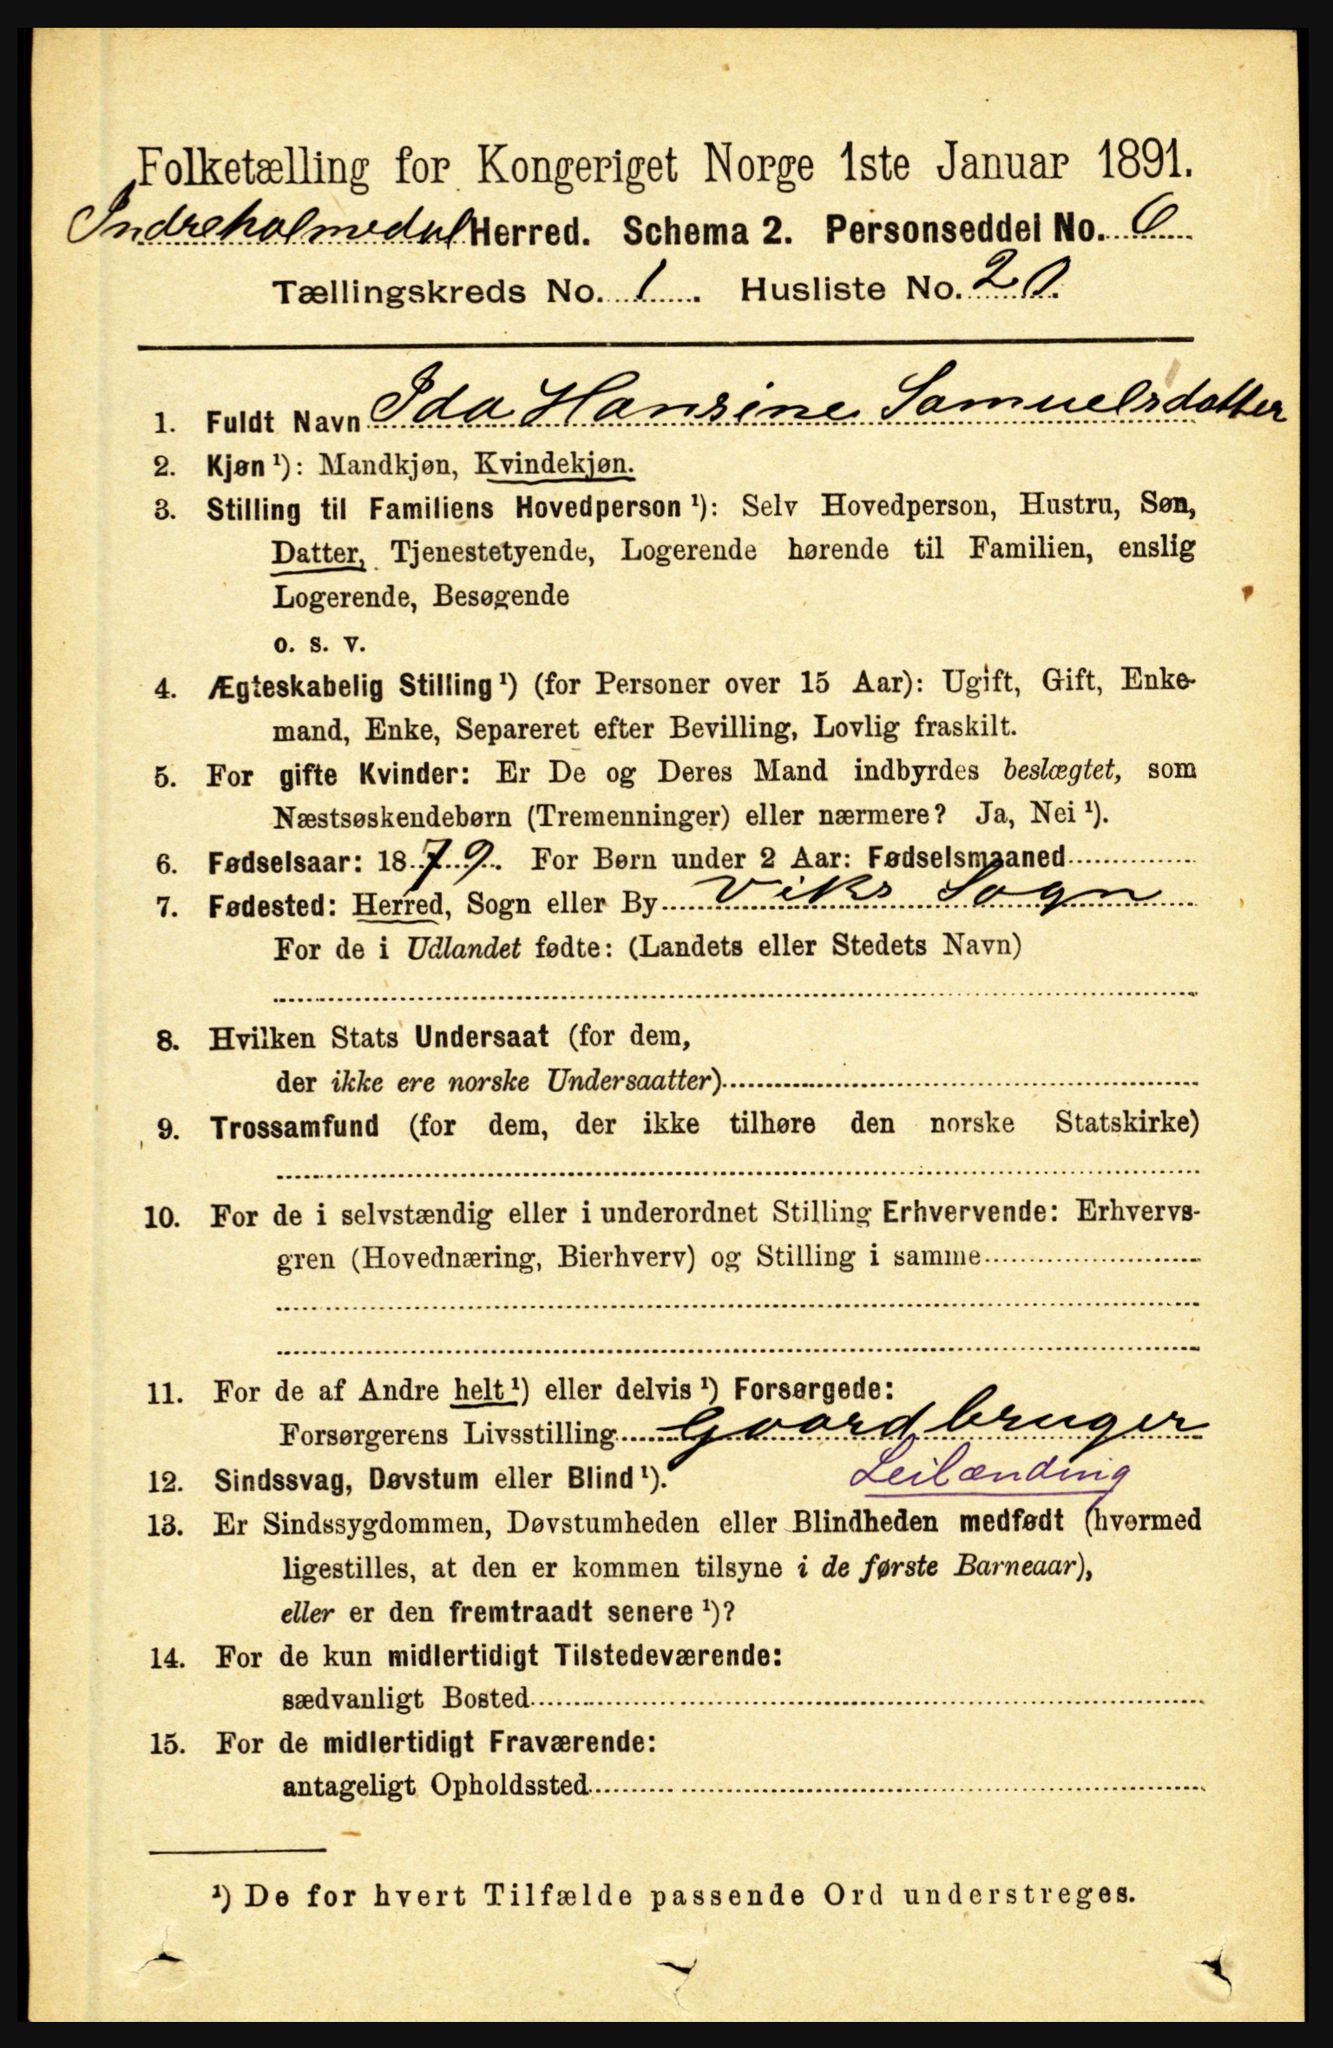 Folketælling for Kongeriget Norge 1ste Januar 1891.
Indreholmedal Herred. Schema 2. Personseddel No. 6
Tællingskreds No. 1. Husliste No. 20.
1. Fuldt Navn Ida Hansine Samuelsdatter
2. Kjøn ¹): Mandkjøn, Kvindekjøn.
3. Stilling til Familiens Hovedperson ¹): Selv Hovedperson, Hustru, Søn,
Datter, Tjenestetyende, Logerende hørende til Familien, enslig
Logerende, Besøgende
o. s. v.
4. Ægteskabelig Stilling ¹) (for Personer over 15 Aar): Ugift, Gift, Enke-
mand, Enke, Separeret efter Bevilling, Lovlig fraskilt.
5. For gifte Kvinder: Er De og Deres Mand indbyrdes beslægtet, som
Næstsøskendebørn (Tremenninger) eller nærmere? Ja, Nei ¹).
6. Fødselsaar: 1879. For Børn under 2 Aar: Fødselsmaaned
7. Fødested: Herred, Sogn eller By Viks Sogn
For de i Udlandet fødte: (Landets eller Stedets Navn)
8. Hvilken Stats Undersaat (for dem,
der ikke ere norske Undersaatter)
9. Trossamfund (for dem, der ikke tilhøre den norske Statskirke)
10. For de i selvstændig eller i underordnet Stilling Erhvervende: Erhvervs-
gren (Hovednæring, Bierhverv) og Stilling i samme
11. For de af Andre helt ¹) eller delvis ¹) Forsørgede:
Forsørgerens Livsstilling Gaardbruger
Leilænding
12. Sindssvag, Døvstum eller Blind ¹).
13. Er Sindssygdommen, Døvstumheden eller Blindheden medfødt (hvormed
ligestilles, at den er kommen tilsyne i de første Barneaar),
eller er den fremtraadt senere ¹)?
14. For de kun midlertidigt Tilstedeværende:
sædvanligt Bosted
15. For de midlertidigt Fraværende:
antageligt Opholdssted
¹) De for hvert Tilfælde passende Ord understreges.